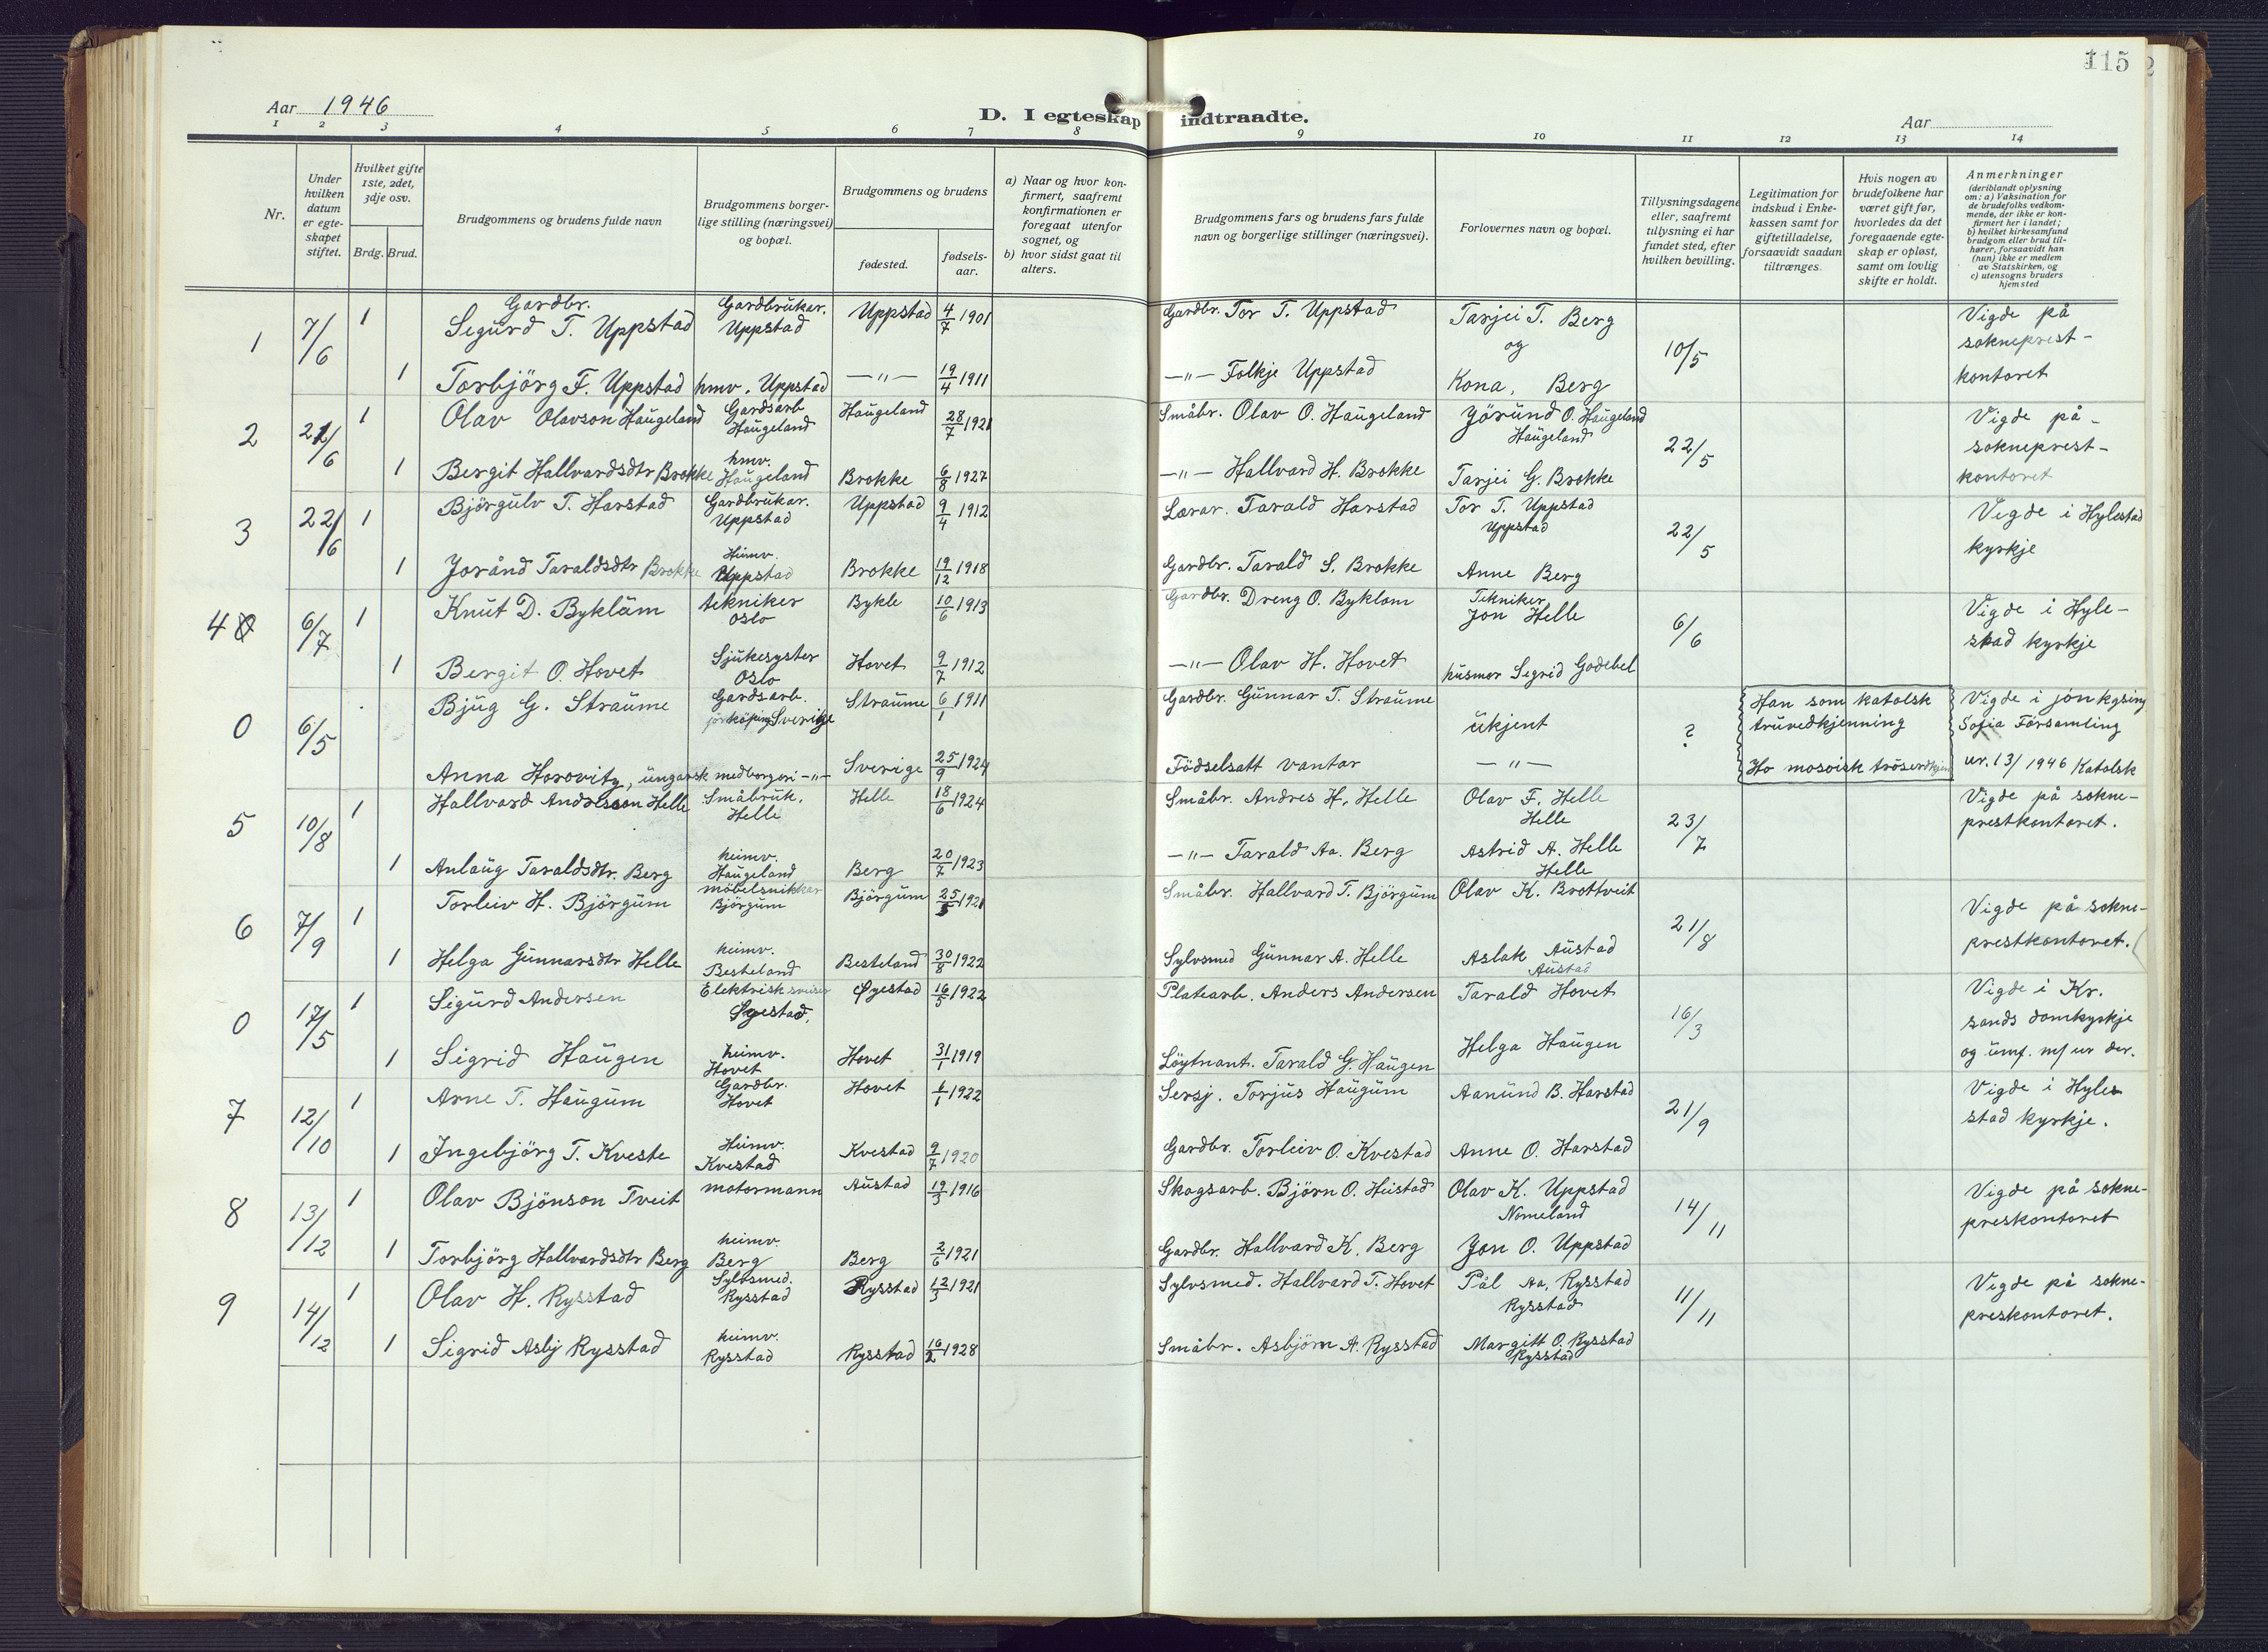 115
Aar 1946
D. I egteskap indtraadte.
Aar
1 2 3 4 5 6 7 8 9 10 11 12 13 14
Nr.
Under hvilken datum er egteskapet stiftet.
Hvilket gifte 1ste, 2det, 3dje osv.
Brdg. Brud.
Brudgommens og brudens fulde navn
Brudgommens borgerlige stilling (næringsvei) og bopæl.
Brudgommens og brudens
fødested.
fødselsaar.
a) Naar og hvor konfirmert, saafremt konfirmationen er foregaat utenfor sognet, og
b) hvor sidst gaat til alters.
Brudgommens fars og brudens fars fulde navn og borgerlige stillinger (næringsvei).
Forlovernes navn og bopæl.
Tillysningsdagene eller, saafremt tillysning ei har fundet sted, efter hvilken bevilling.
Legitimation for indskud i Enkekassen samt for giftetilladelse, forsaavidt saadan tiltrænges.
Hvis nogen av brudefolkene har været gift før, hvorledes da det foregaaende egteskap er opløst, samt om lovlig skifte er holdt.
Anmerkninger (deriblandt oplysning om: a) Vaksination for de brudefolks vedkommende, der ikke er konfirmert her i landet; b) hvilket kirkesamfund brudgom eller brud tilhører, forsaavidt han (hun) ikke er medlem av Statskirken, og c) utensogns bruders hjemsted
1 7/6 1 Gardbr. Sigurd T. Uppstad Gardbrukar. Uppstad Uppstad 4/7 1901 Gardbr. Tor T. Uppstad Tarjei T. Berg og 10/5 Vigde på sokneprest-kontoret
1 Torbjörg F. Uppstad hmv. Uppstad —"— 19/4 1911 —"— Folkje Uppstad Kona, Berg
2 22/6 1 Olav Olavson Haugeland Gardsarb Haugeland Haugeland 28/7 1921 Småbr. Olav O. Haugeland Jörund O. Haugeland Haugeland 22/5 Vigde på - sokneprest-kontoret
1 Bergit Hallvardsdtr Brokke hmv. Haugeland Brokke 6/8 1927 —"— Hallvard H. Brokke Tarjei G. Brokke
3 22/6 1 Björgulv T. Harstad Gardbrukar. Uppstad Uppstad 9/4 1912 Lærar. Tarald Harstad Tor T. Uppstad Uppstad 22/5 Vigde i Hylestad kyrkje
1 Joränd Taraldsdtr Brokke Heimv. Uppstad Brokke 19/12 1918 Gardbr. Tarald S. Brokke Anne Berg
4 6/7 1 Knut D. Bykläm tekniker Oslo Bykle 10/6 1913 Gardbr. Dreng O. Byklom Tekniker Jon Helle 6/6 Vigde i Hyle-stad kyrkje
1 Bergit O. Hovet Sjukesyster Oslo Hovet 9/7 1912 —"— Olav H. Hovet husmor Sigrid Godebel
0 6/5 Bjug G. Straume Gardsarb. Sverige Straume 6/1 1911 Gardbr. Gunnar T. Straume ukjent ? Han som katolsk truvedkjenning Vigde i Sofia Församling
Anna Horovitz, ungarsk medborgari —"— Sverige 25/9 1924 Födselsatt vantar —"— Ho nr. 13/1946 Katolsk
5 10/8 1 Hallvard Andresson Helle Småbruk. Helle Helle 18/6 1924 Småbr. Andres H. Helle Olav F. Helle Helle 23/7 Vigde på sokne-prestkontoret.
1 Anlaug Taraldsdtr. Berg heimv. Haugeland Berg 20/7 1923 —"— Tarald Aa. Berg Astrid A. Helle Helle
6 7/9 1 Torleiv H. Björgum möbelsnikkar Björgum Björgum 25/5 1921 Småbr. Hallvard T. Björgum Olav K. Brottveit 21/8 Vigde på sokne-prestkontoret.
1 Helga Gunnarsdtr Helle heimv. Besteland Besteland 30/8 1922 Sylvsmed Gunnar A. Helle Aslak Austad Austad
0 17/5 1 Sigurd Andersen Elektrisk sveiser Øyestad, Øyestad 16/5 1922 Platearb. Anders Andersen Tarald Hovet 16/3 Vigde i Kr.sands domkyrkje og umf. m/ nr der.
1 Sigrid Haugen heimv. Hovet Hovet 31/1 1919 Löytnant. Tarald G. Haugen Helga Haugen
7 12/10 1 Arne T. Haugum Gardbr. Hovet Hovet 6/1 1922 Sersj. Torjus Haugum Aanund B. Harstad 21/9 Vigde i Hyle-stad kyrkje.
1 Ingebjörg T. Kveste Heimv. Kvestad Kvestad 9/7 1920 Gardbr. Torleiv O. Kvestad Anne O. Harstad
8 13/12 1 Olav Bjönson Tveit motormann Austad 19/3 1916 Skogsarb. Björn O. Heistad Olav K. Uppstad Nomeland 14/11 Vigde på sokne-preskontoret
1 Torbjörg Hallvardsdtr Berg heimv. Berg Berg 2/6 1921 Gardbr. Hallvard K. Berg Jon O. Uppstad
9 14/12 1 Olav H. Rysstad Sylvsmed. Rysstad Rysstad 12/3 1921 Sylvsmed. Hallvard T. Hovet Pål Aa. Rysstad Rysstad 11/11 Vigde på sokne-preskontoret.
1 Sigrid Asbj Rysstad heimv. Rysstad Rysstad 16/2 1928 Småbr. Asbjörn A. Rysstad Margitt O. Rysstad Rysstad